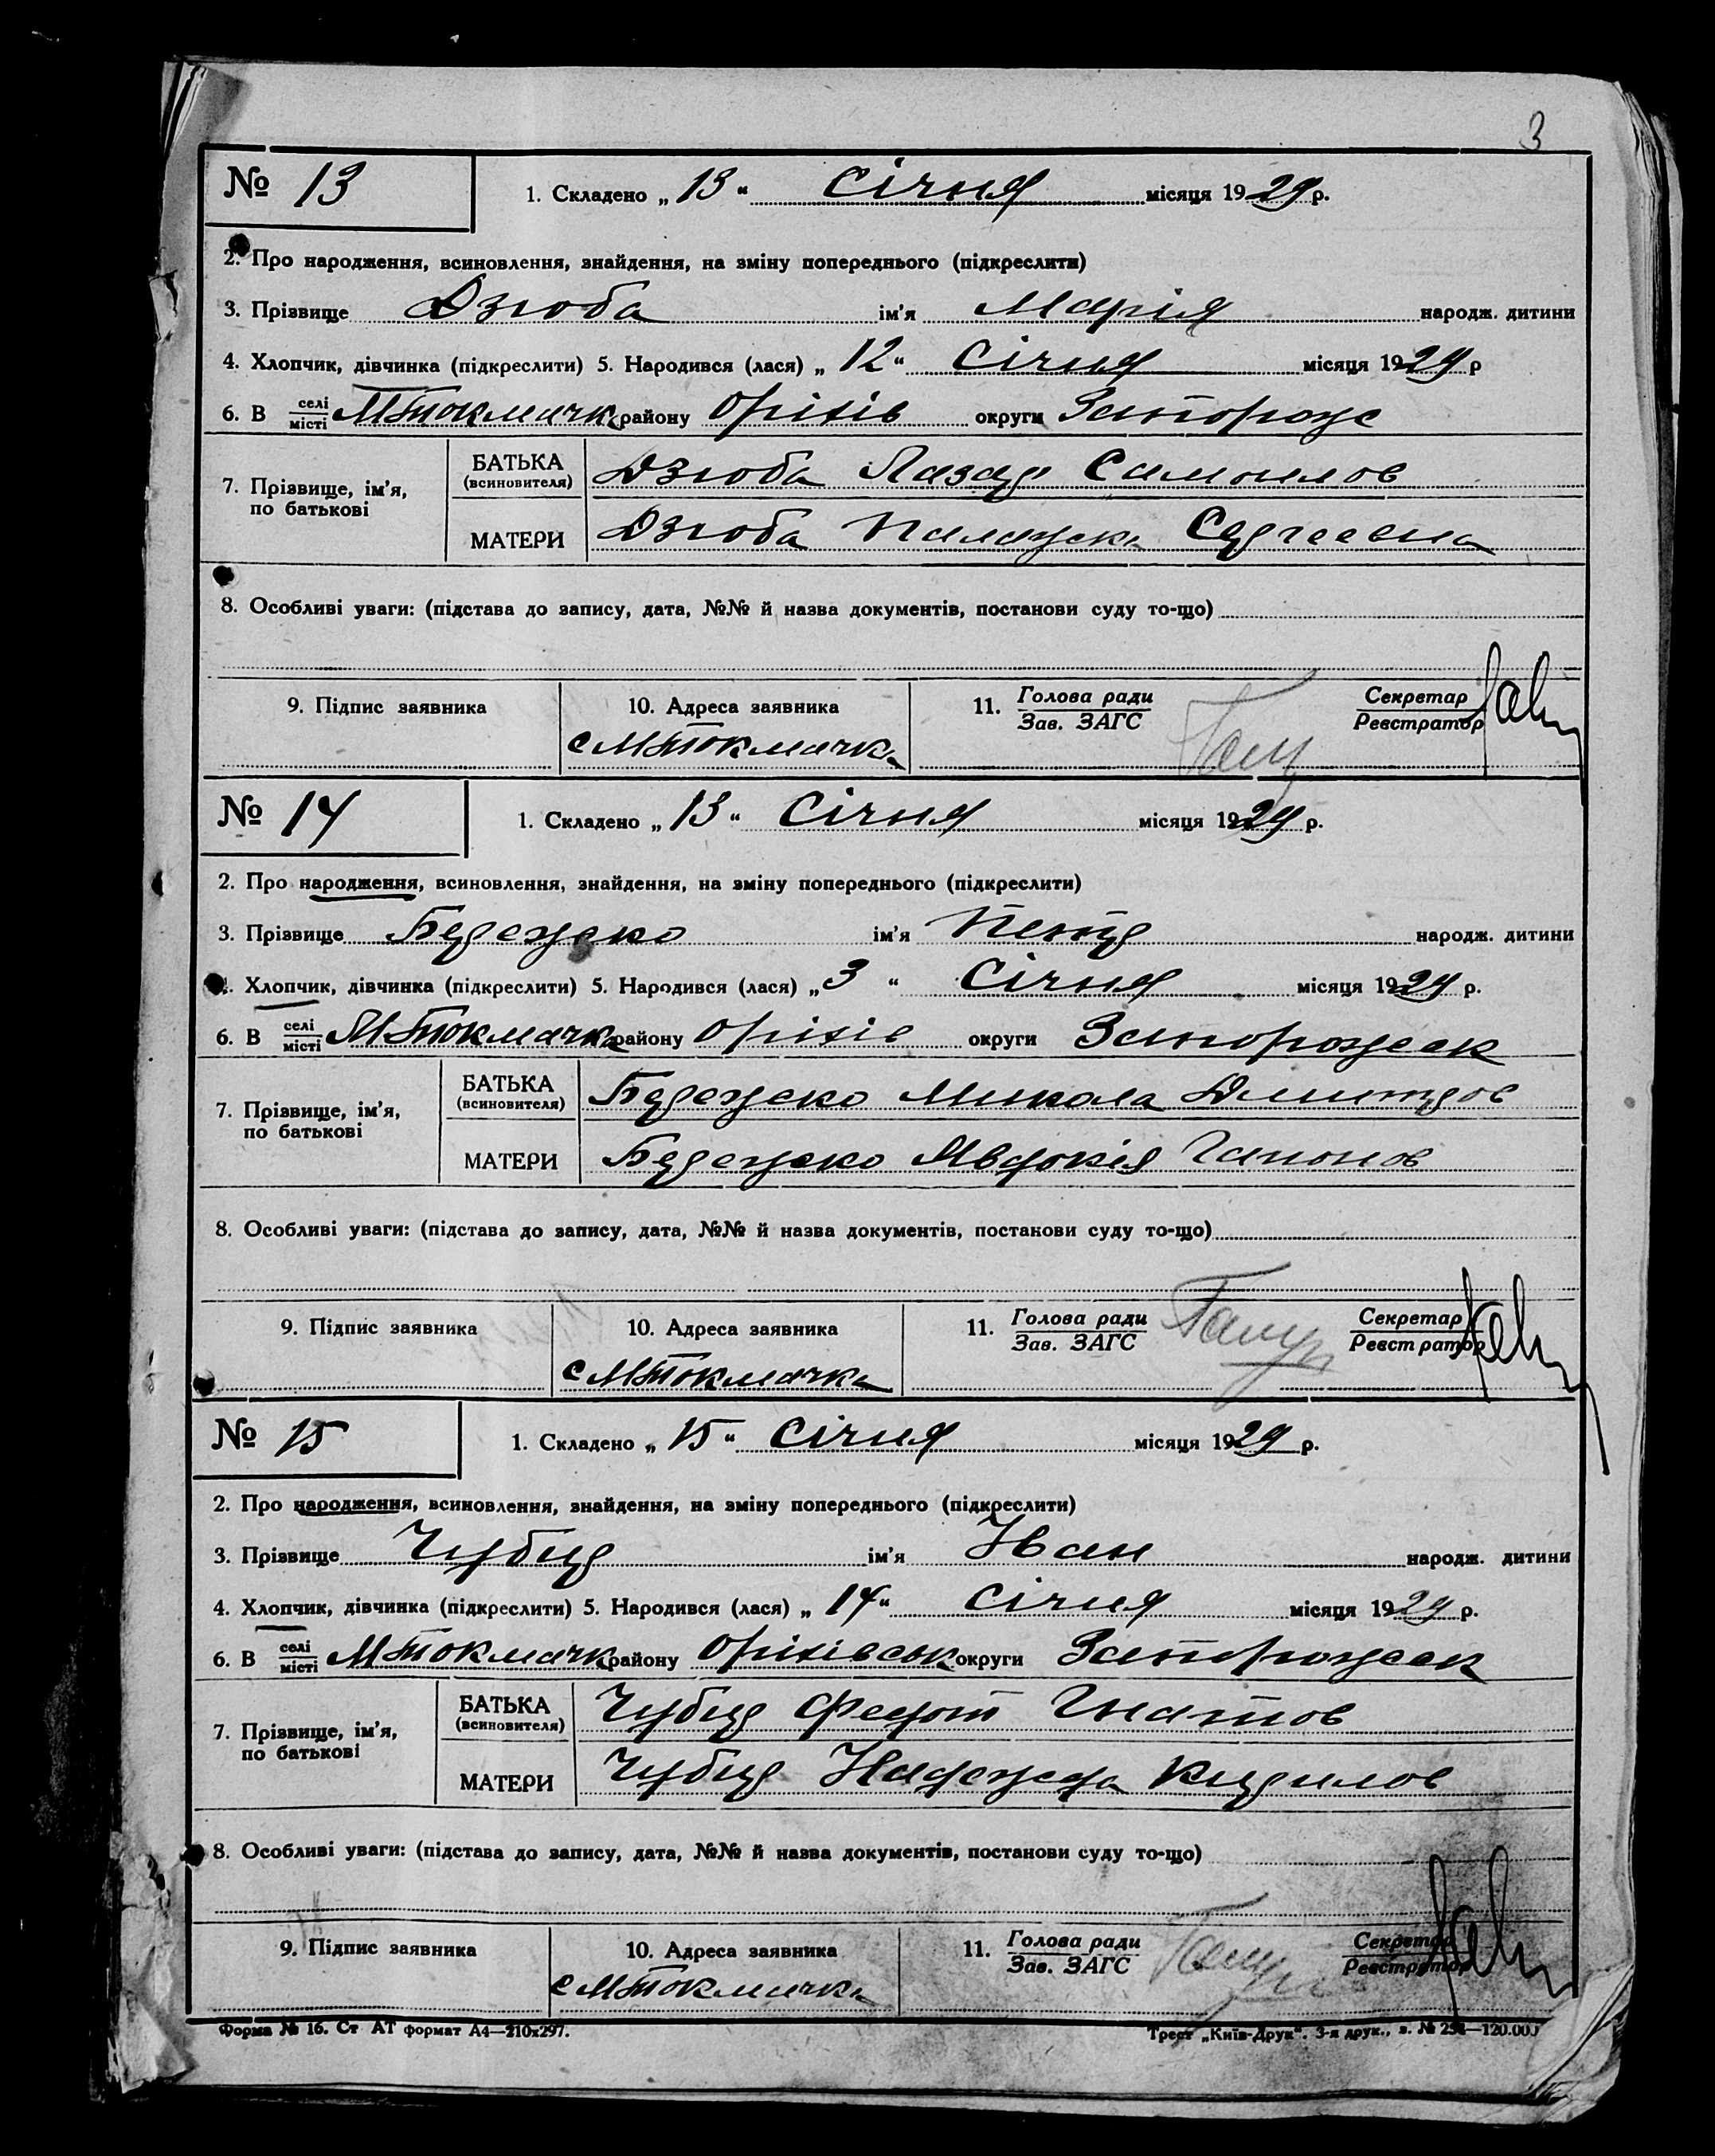 3
№ 13 1. Складено „ 13 “ Січня місяця 1929 р.
2. Про народження, всиновлення, знайдення, на зміну попереднього (підкреслити)
3. Прізвище Дзюба ім'я Марія народж. дитини
4. Хлопчик, дівчинка (підкреслити) 5. Народився (лася) „ 12 “ Січня місяця 1929 р
6. В селі місті МТокмачка району Оріхів округи Запорож
7. Прізвище, ім'я, по батькові БАТЬКА (всиновителя) Дзюба Лазар Самоилов
МАТЕРИ Дзюба Палажка Сергеевна
8. Особливі уваги: (підстава до запису, дата, №№ й назва документів, постанови суду то-що)
9. Підпис заявника 10. Адреса заявника 11. Голова ради Зав. ЗАГС Секретар Реєстратор
с МТокмачка
№ 14 1. Складено „ 13 “ Січня місяця 1929 р.
2. Про народження, всиновлення, знайдення, на зміну попереднього (підкреслити)
3. Прізвище Бережко ім'я Петр народж. дитини
4. Хлопчик, дівчинка (підкреслити) 5. Народився (лася) „ 3 “ Січня місяця 1929 р.
6. В селі місті МТокмачка району Оріхів округи Запорожск
7. Прізвище, ім'я, по батькові БАТЬКА (всиновителя) Бережко Микола Дмитров
МАТЕРИ Бережко Явдокія Гапонов
8. Особливі уваги: (підстава до запису, дата, №№ й назва документів, постанови суду то-що)
9. Підпис заявника 10. Адреса заявника 11. Голова ради Зав. ЗАГС Секретар Реєстратор
с МТокмачка
№ 15 1. Складено „ 15 “ Січня місяця 1929 р.
2. Про народження, всиновлення, знайдення, на зміну попереднього (підкреслити)
3. Прізвище Чубир ім'я Иван народж. дитини
4. Хлопчик, дівчинка (підкреслити) 5. Народився (лася) „ 14 “ Січня місяця 1929 р.
6. В селі місті МТокмачка району Оріхівськ округи Запорожск
7. Прізвище, ім'я, по батькові БАТЬКА (всиновителя) Чубир Федот Гнатов
МАТЕРИ Чубир Надежда Кирилов
8. Особливі уваги: (підстава до запису, дата, №№ й назва документів, постанови суду то-що)
9. Підпис заявника 10. Адреса заявника 11. Голова ради Зав. ЗАГС Секретар Реєстратор
с МТокмачка
Форма № 16. Ст АТ формат А4—210х297. Трест „Київ-Друк“. 3-я друк., з. №